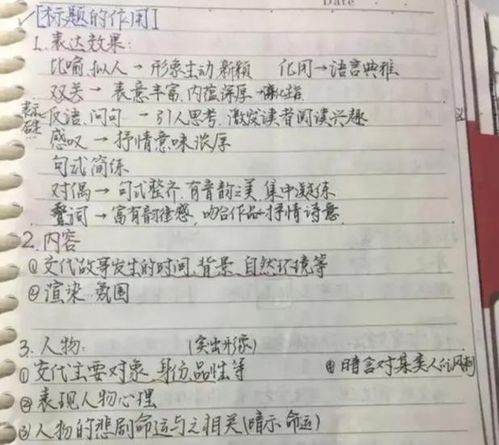 Date
[标题的作用]
1. 表达效果:
比喻,拟人→形象生动新颖 化用→语言典雅
双关→表意丰富,内蕴深厚
反语、问句→引人思考,激发读者阅读兴趣
感叹→抒情意味浓厚
句式简练
对偶→句式整齐,有音韵之美,集中凝练
叠词→富有韵律感,吻合作品抒情诗意
2. 内容
①交代故事发生的时间,背景,自然环境等
②渲染 氛围
3. 人物: (突出形象)
①交代主要对象,身份,品性等 ④暗含对某类人的讽刺
②表现人物心理
③人物的悲剧命运与之相关(暗示 命运)